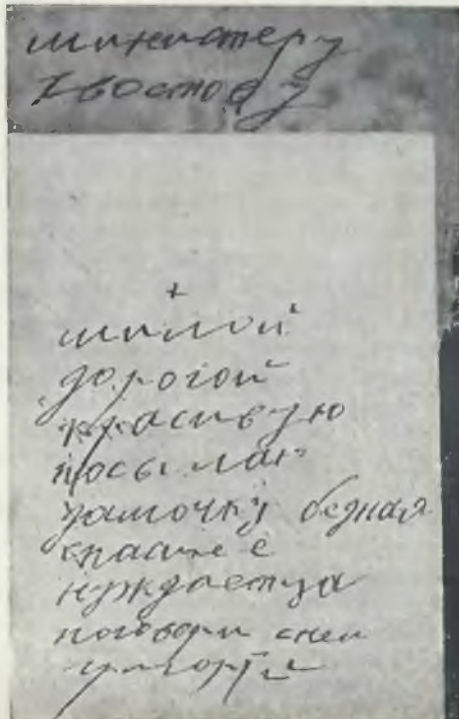 министеру
хвостову
+
милой
дорогой
красивую
посылаю
дамочку бедная
спасие е
нуждаетца
поговори снеи
григории